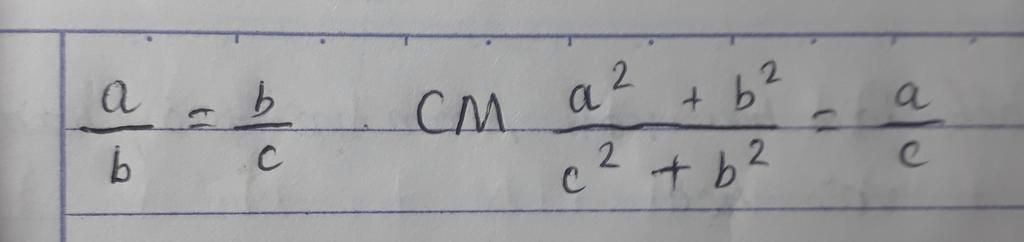 a/b = b/c . CM (a² + b²)/(c² + b²) = a/c